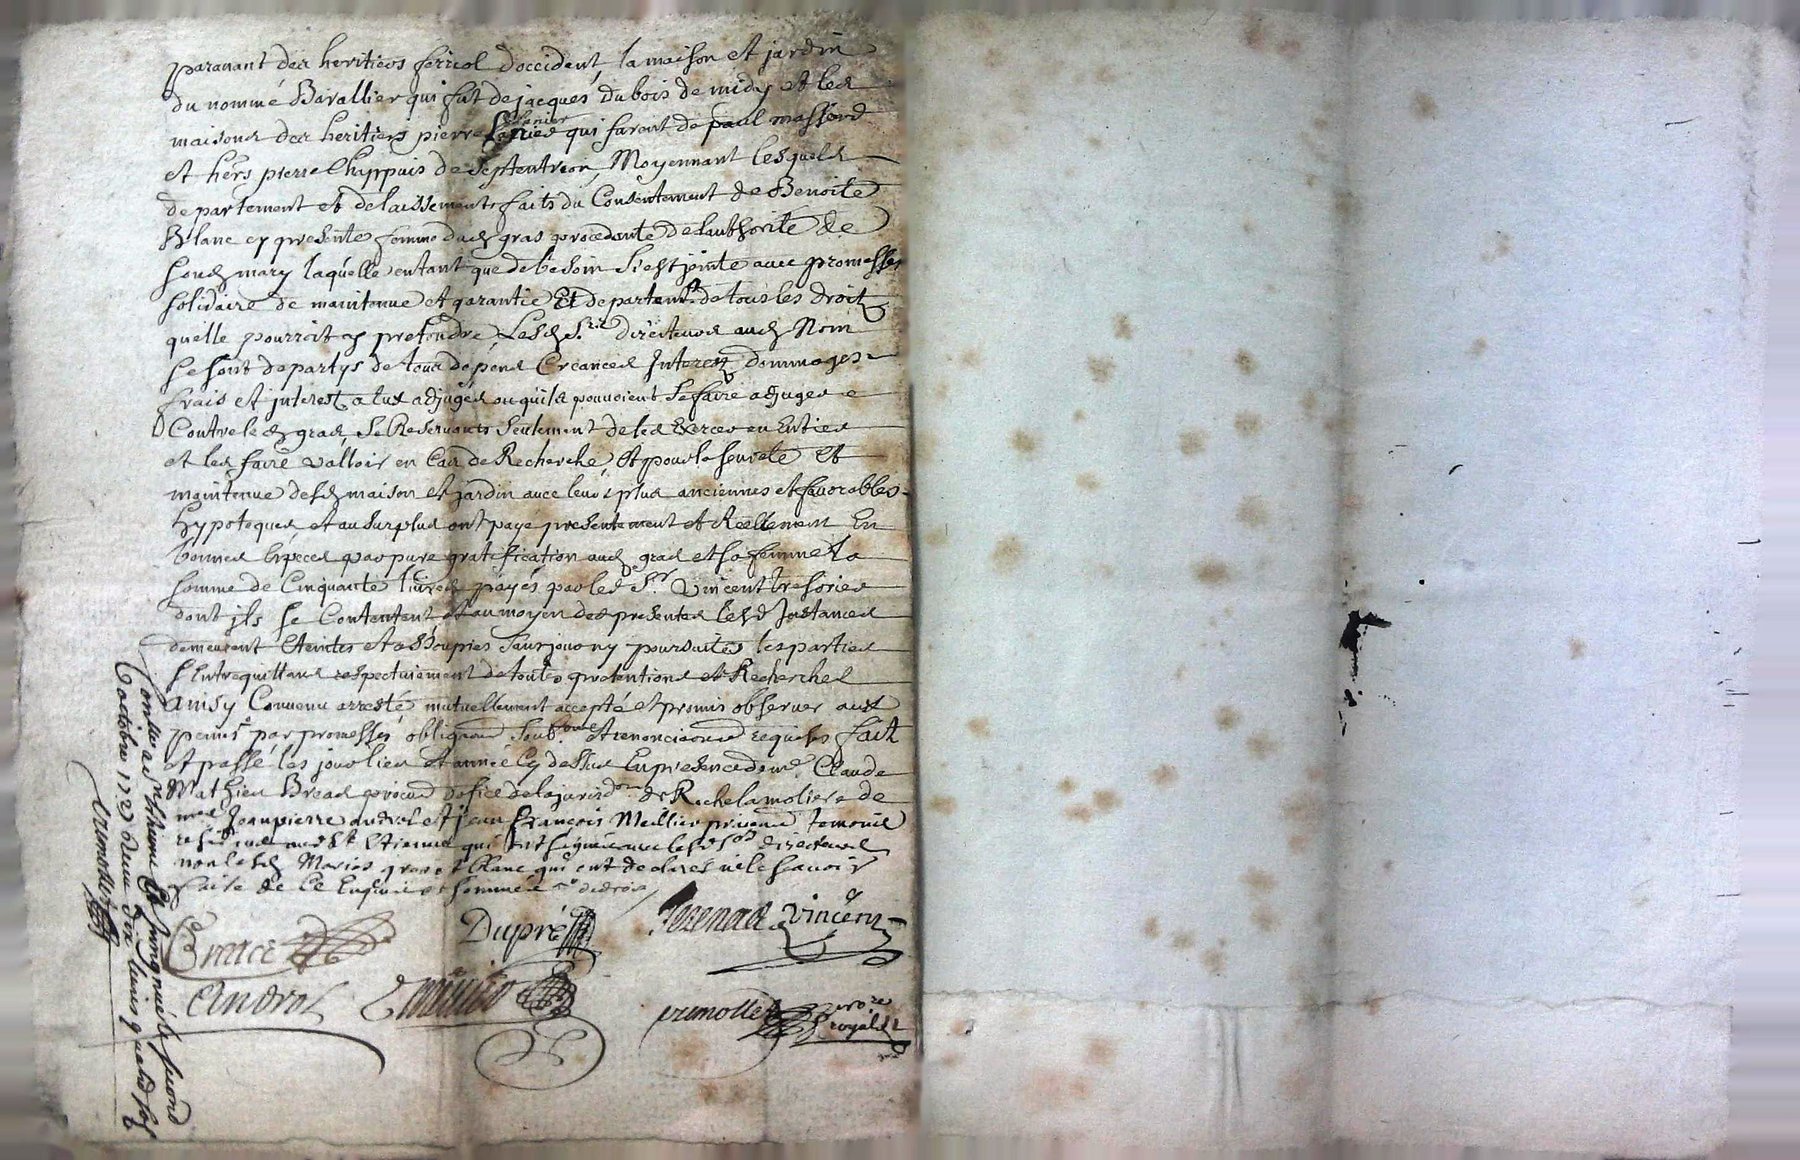 paravant des heritiers ferriol doccident, la maison et jardin
du nommé Bavallier qui fut de jacques Dubois de midy et les
maisons des heritiers pierre qui furent de paul massard
et hers pierre Chappuis de Septentrion, Moyennant lesquels
departement et delaissements faits du Consentement de Benoite
Blanc cy presente femme dud gras procedante de lauthorité de
sond mary laquelle entant que de besoin s'est jointe avec promesses
solidaire de maintenue et garantie Et departemt de tous les droits
quelle pourroit y pretendre Lesd Srs directeurs aud Nom
se sont departys de tous depens Creances Interets dommages
frais et interest a eux adjugés ou quils pouvoient se faire adjuger
Contre led gras, Se Reservants seulement de les Exercer en Entier
et les faire valloir en Cas de Recherche, Et pour la seureté Et
maintenue desd maison et jardin avec leurs plus anciennes et favorables
hypoteques et au surplus ont payé presentement et Reellement En
bonnes Espèces par pure gratification aud gras et sa femme La
somme de Cinquante livres payés par led Sr Vincent tresorier
dont ils se Contentent Et au moyen des presentes lesd Instances
demeurent Eteintes et assoupies sans pouvoir y poursuites les parties
s'Entrequittans respectivement de toutes pretentions et Recherches
ainsy Convenu arresté mutuellement accepté et promis observer aux
peines par promesses obligaons soub.ons et renonciaons requises fait
et passé les jour lieu et année Cy dessus En presence de me Claude
Mathieu Breas procur doffice de la jurisdon de Rochelamoliere de
me Jean pierre androl et jean François Meillier praticiens temoins
residens aud St Etienne qui ont signé avec lesd Srs directeurs
non lesd Mariés gras et Blanc qui ont declarés ne le sçavoir
faire de Ce Enquis et sommés
Dupré
Vincent
Androl
prunollet
royal
Controllé a St Estienne Et Insinué le second
octobre 1721 Receu dix livres quatre sols